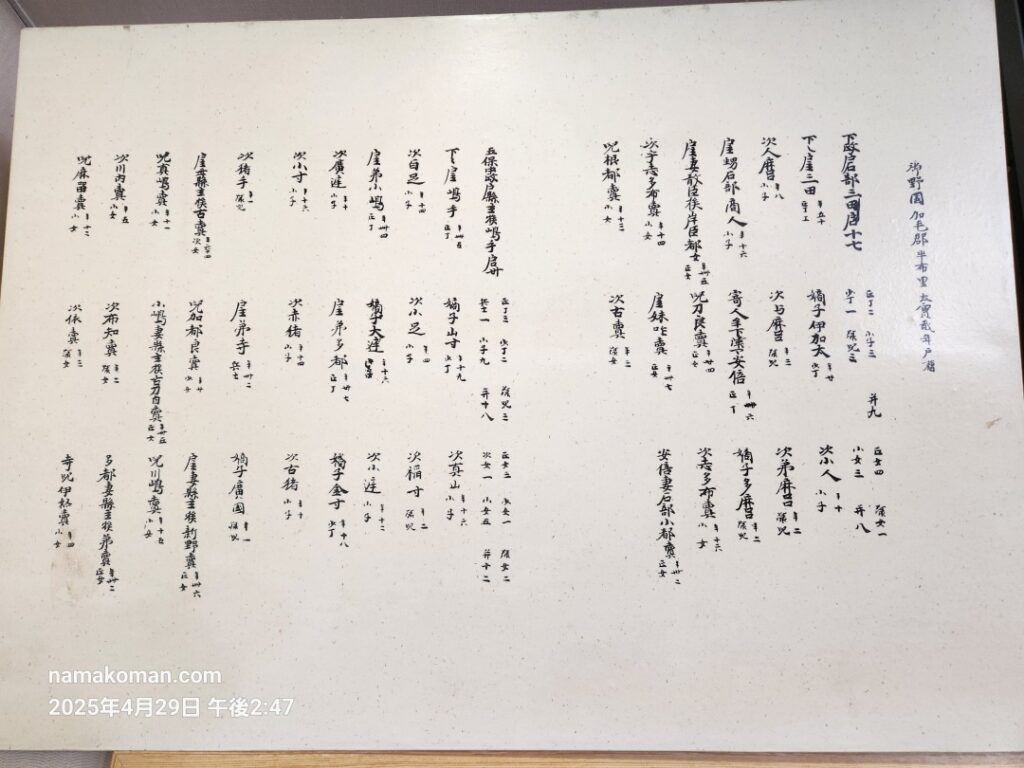 御野國加毛郡半布里太寶貳年戸籍
下政戸石部三田戸十七
正丁二 小子三
少丁一 緑児三
并九
正女四 緑女一
小女三 并八
下〻戸三田 年五十
嫡子伊加太 年廿 少丁
次小人 年十 小子
次人麿 年八 小子
次与麻呂 年三 緑児
次弟麻呂 年二 緑児
戸甥石部商人 年十六 小子
寄人 安倍 年卅六 正丁
嫡子多麿 年二 緑児
戸妻敢臣族岸臣都女 正女
児刀良賣 年廿四 正女
次意多布賣 年十六 小女
次辛嘉多布賣 年十四 小女
戸妹咋賣 年卅七 正女
安倍妻石部小都賣 年卅二 正女
児根都賣 年十三 小女
次古賣 年二 緑女
五保 政戸縣主族嶋手戸卅
正丁三 少丁二 緑児三
兵士一 小子九 并十八
正女三 少女一 緑女二
次女一 小女五 并十二
下〻戸嶋手 正丁
嫡子山寸 年十九 少丁
次真山 年十六 小子
次白足 年十四 小子
次小足 年四 小子
次稲寸 年二 緑児
戸弟小嶋 年卌四 正丁
嫡子大逹 年十六
次小逹 年十二 小子
次廣逹 年十 小子
戸弟多都 年卅七 正丁
嫡子金寸 年十八 少丁
次小寸 年十六 小子
次赤猪 年十四 小子
次古猪 年十 小子
次猪手 年一 緑児
戸弟寺 年卅二 兵士
嫡子廣國 年一 緑児
戸母縣主族古賣 次女
児加都良賣 年廿 少女
戸妻縣主族新野賣 年卅六 正女
児真嶋賣 年十一 小女
小嶋妻縣主族 自賣 正女
児川嶋賣 年十五 小女
次川内賣 年五 小女
次布知賣 年二 緑女
多都妻縣主族弟賣 年卅二 正女
児麻留賣 年十二 小女
次依賣 年二 緑女
寺児伊怒賣 年四 小女
namakoman.com
2025年4月29日 午後2:47